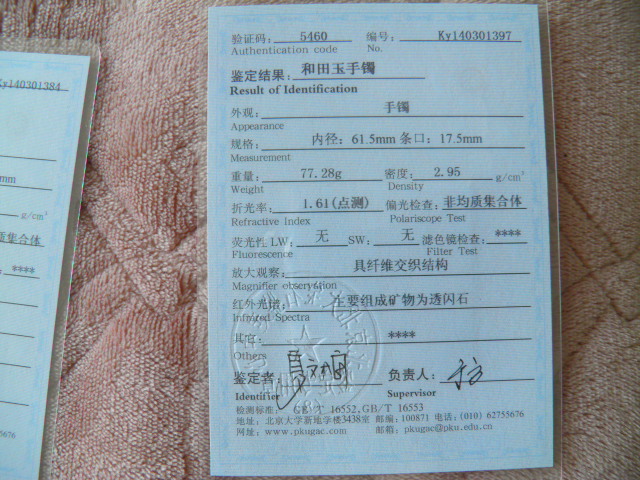 Ky140301384
mm
g/cm³
质集合体
****
5676
验证码: 5460 编号: Ky140301397
Authentication code No.
鉴定结果: 和田玉手镯
Result of Identification
外观: 手镯
Appearance
规格: 内径: 61.5mm 条口: 17.5mm
Measurement
重量: 77.28g 密度: 2.95 g/cm³
Weight Density
折光率: 1.61(点测) 偏光检查: 非均质集合体
Refractive Index Polariscope Test
荧光性 LW: 无 SW: 无 滤色镜检查: ****
Fluorescence Filter Test
放大观察: 具纤维交织结构
Magnifier observation
红外光谱: 主要组成矿物为透闪石
Infrared Spectra
其它: ****
Others
鉴定者: 负责人:
Identifier Supervisor
检测标准: GB/T 16552,GB/T 16553
地址: 北京大学新地学楼3438室 邮编: 100871 电话: (010) 62755676
网址: www.pkugac.com 邮箱: pkugac@pku.edu.cn